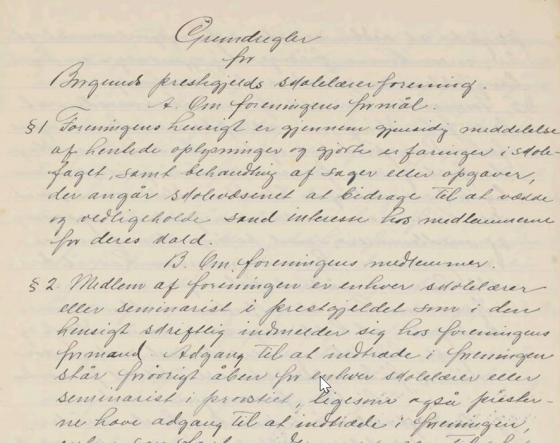 Grundregler
for
Borgunds prestegjelds skolelærerforening.
A. Om foreningens formål.
§ 1 Foreningens hensigt er gjennem gjensidig meddelelse
af hentede oplysninger og gjorte erfaringer i skole-
faget, samt behandling af sager eller opgaver,
der angår skolevæsenet at bidrage til at vække
og vedligeholde sand interesse hos medlemmerne
for deres kald.
B. Om foreningens medlemmer.
§ 2. Medlem af foreningen er enhver skolelærer
eller seminarist i prestegjeldet som i den
hensigt skriftlig indmelder sig hos foreningens
formand. Adgang til at indtræde i foreningen
står forøvrigt åben for enhver skolelærer eller
seminarist i provstiet, ligesom også prester-
ne have adgang til at indtræde i foreningen,